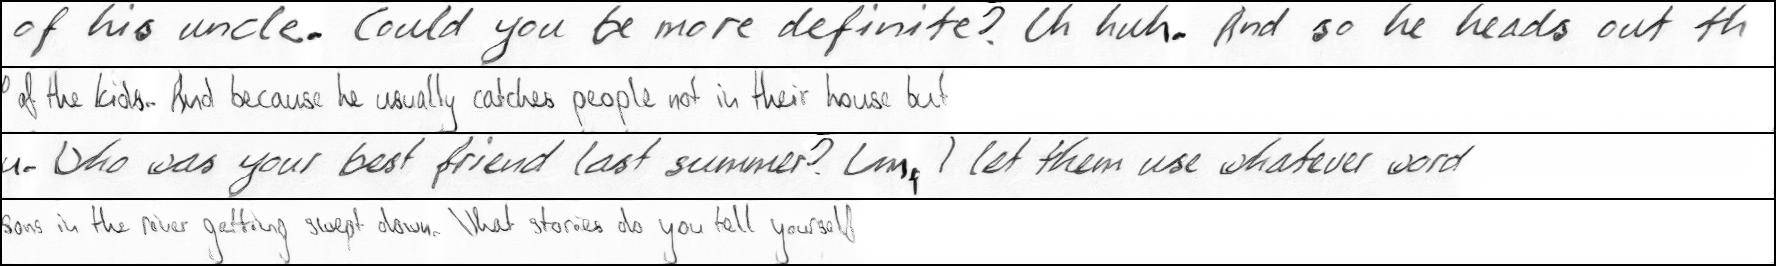 of his uncle. Could you be more definite? Uh huh. And so he heads out th
of the kids. And because he usually catches people not in their house but
u. Who was your best friend last summer? Um, I let them use whatever word
sons in the river getting swept down. What stories do you tell yourself